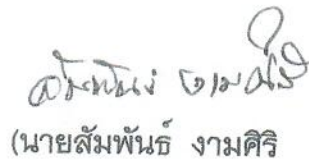 สัมพันธ์ งามศิริ
(นายสัมพันธ์ งามศิริ